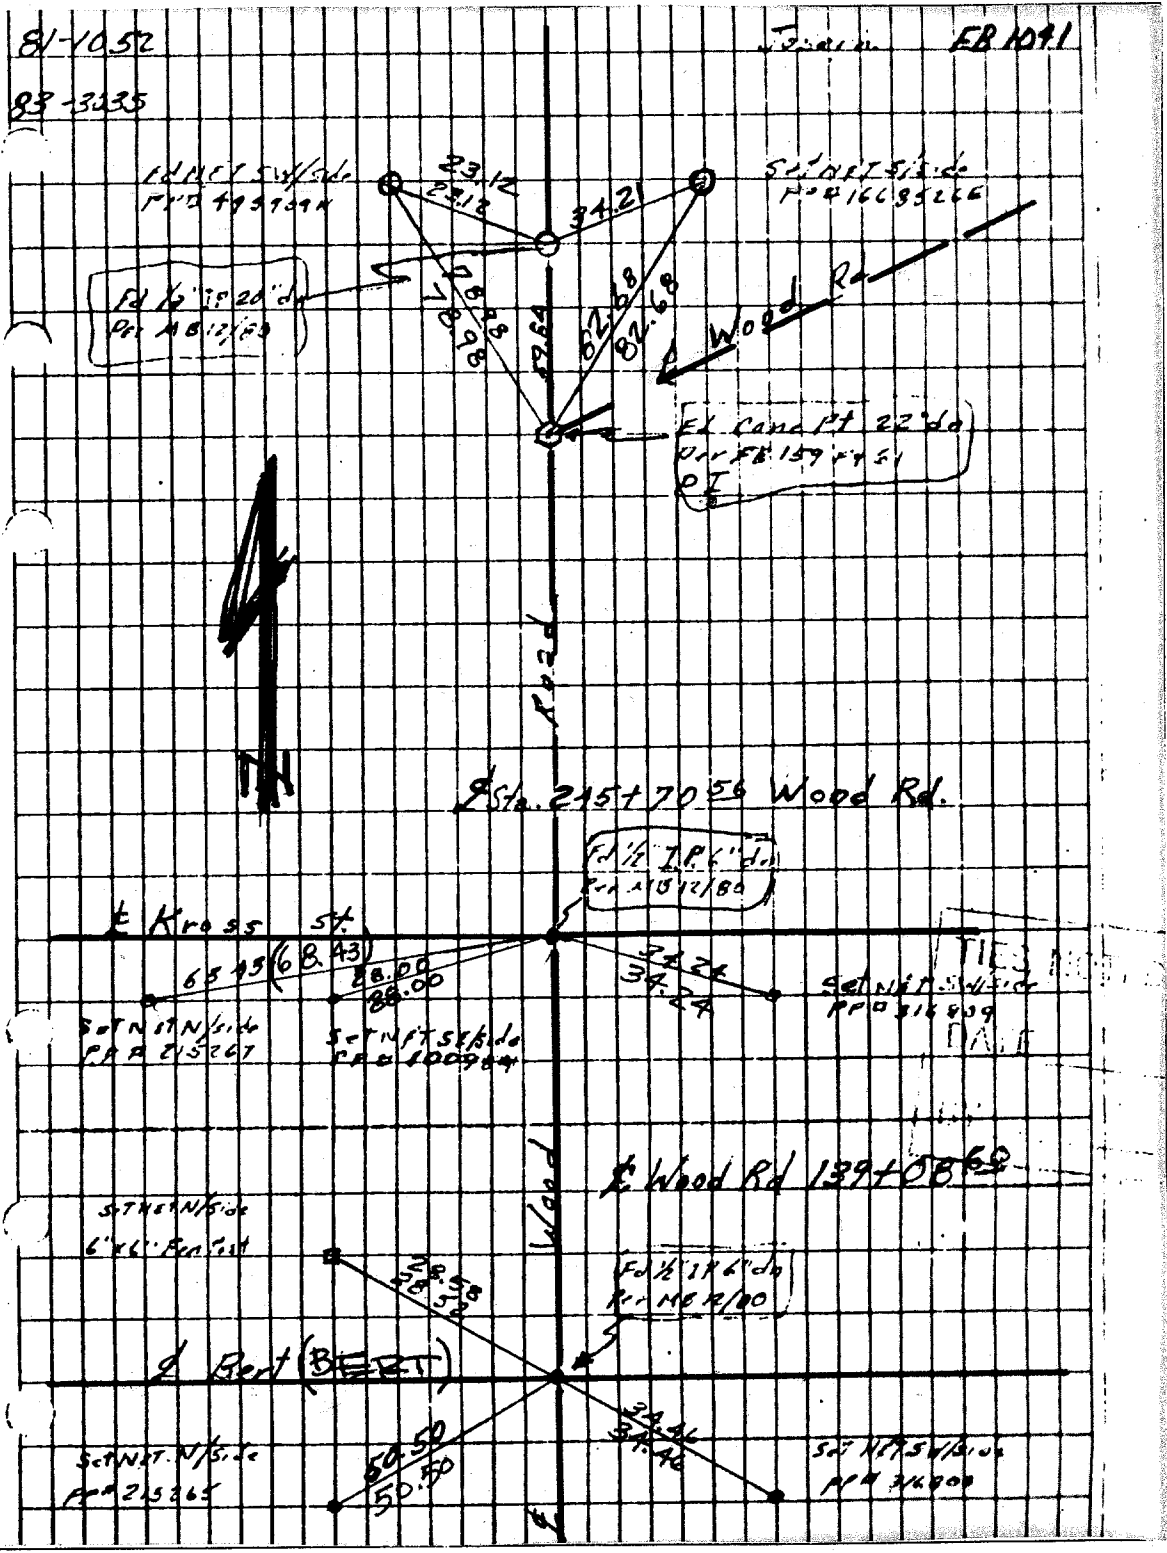 81-1052
EB 1041
83-3235
Fd NET SW/side
23.12
23.12
34.21
Set NET S/side
PP# 16685266
Fd 1/2" IP 20" dn
Per MB 12/80
78.98
78.98
59.64
82.68
82.68
Wood Rd
Fd Conc Pt 22" dn
Per FB 159 Pg 51
P I
N
Road
₵ Sta. 245+70 56 Wood Rd.
Fd 1/2 I.P. 6" dn
Per MB 12/80
₵ Kross St.
68.43 (68.43)
88.00
88.00
34.24
34.24
Set NET N/side
PP# 215267
Set NET SE/side
Set NET SW/side
PP# 316809
TIES NOT
DATE
Wood
₵ Wood Rd 139+08 60
Set NET N/side
6"x6" Fen Post
Fd 1/2" IP 6" dn
Per MB 12/80
₵ Bert (BERT)
50.50
50.50
34.46
34.46
Set NET. N/side
PP# 215265
Set NET SW/side
PP# 316808
₵